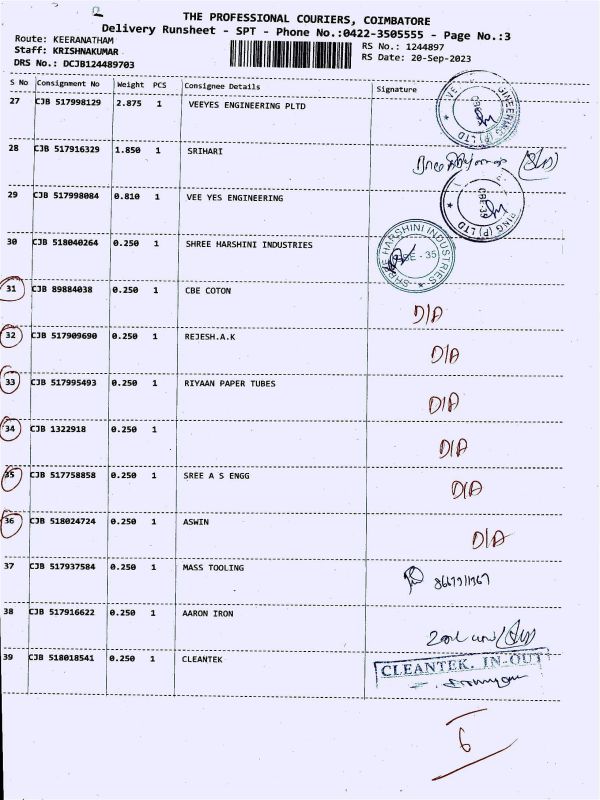 THE PROFESSIONAL COURIERS, COIMBATORE
Delivery Runsheet - SPT - Phone No.:0422-3505555 - Page No.:3
Route: KEERANATHAM
RS No.: 1244897
Staff: KRISHNAKUMAR
RS Date: 20-Sep-2023
DRS No.: DCJB124489703
S No Consignment No Weight PCS Consignee Details Signature
27 CJB 517998129 2.875 1 VEEYES ENGINEERING PLTD
28 CJB 517916329 1.850 1 SRIHARI
29 CJB 517998084 0.810 1 VEE YES ENGINEERING
30 CJB 518040264 0.250 1 SHREE HARSHINI INDUSTRIES
SHREE HARSHINI INDUSTRIES
31 CJB 89884038 0.250 1 CBE COTON D/A
32 CJB 517909690 0.250 1 REJESH.A.K D/A
33 CJB 517995493 0.250 1 RIYAAN PAPER TUBES D/A
34 CJB 1322918 0.250 1 D/A
35 CJB 517758858 0.250 1 SREE A S ENGG D/A
36 CJB 518024724 0.250 1 ASWIN D/A
37 CJB 517937584 0.250 1 MASS TOOLING
38 CJB 517916622 0.250 1 AARON IRON
39 CJB 518018541 0.250 1 CLEANTEK
CLEANTEK. IN-OUT
6